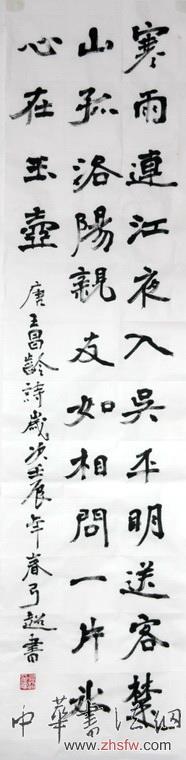 寒雨連江夜入吳平明送客楚
山孤洛陽親友如相問一片冰
心在玉壺
唐王昌齡詩歲次壬辰年春弓超書
中華書法網
www.zhsfw.com